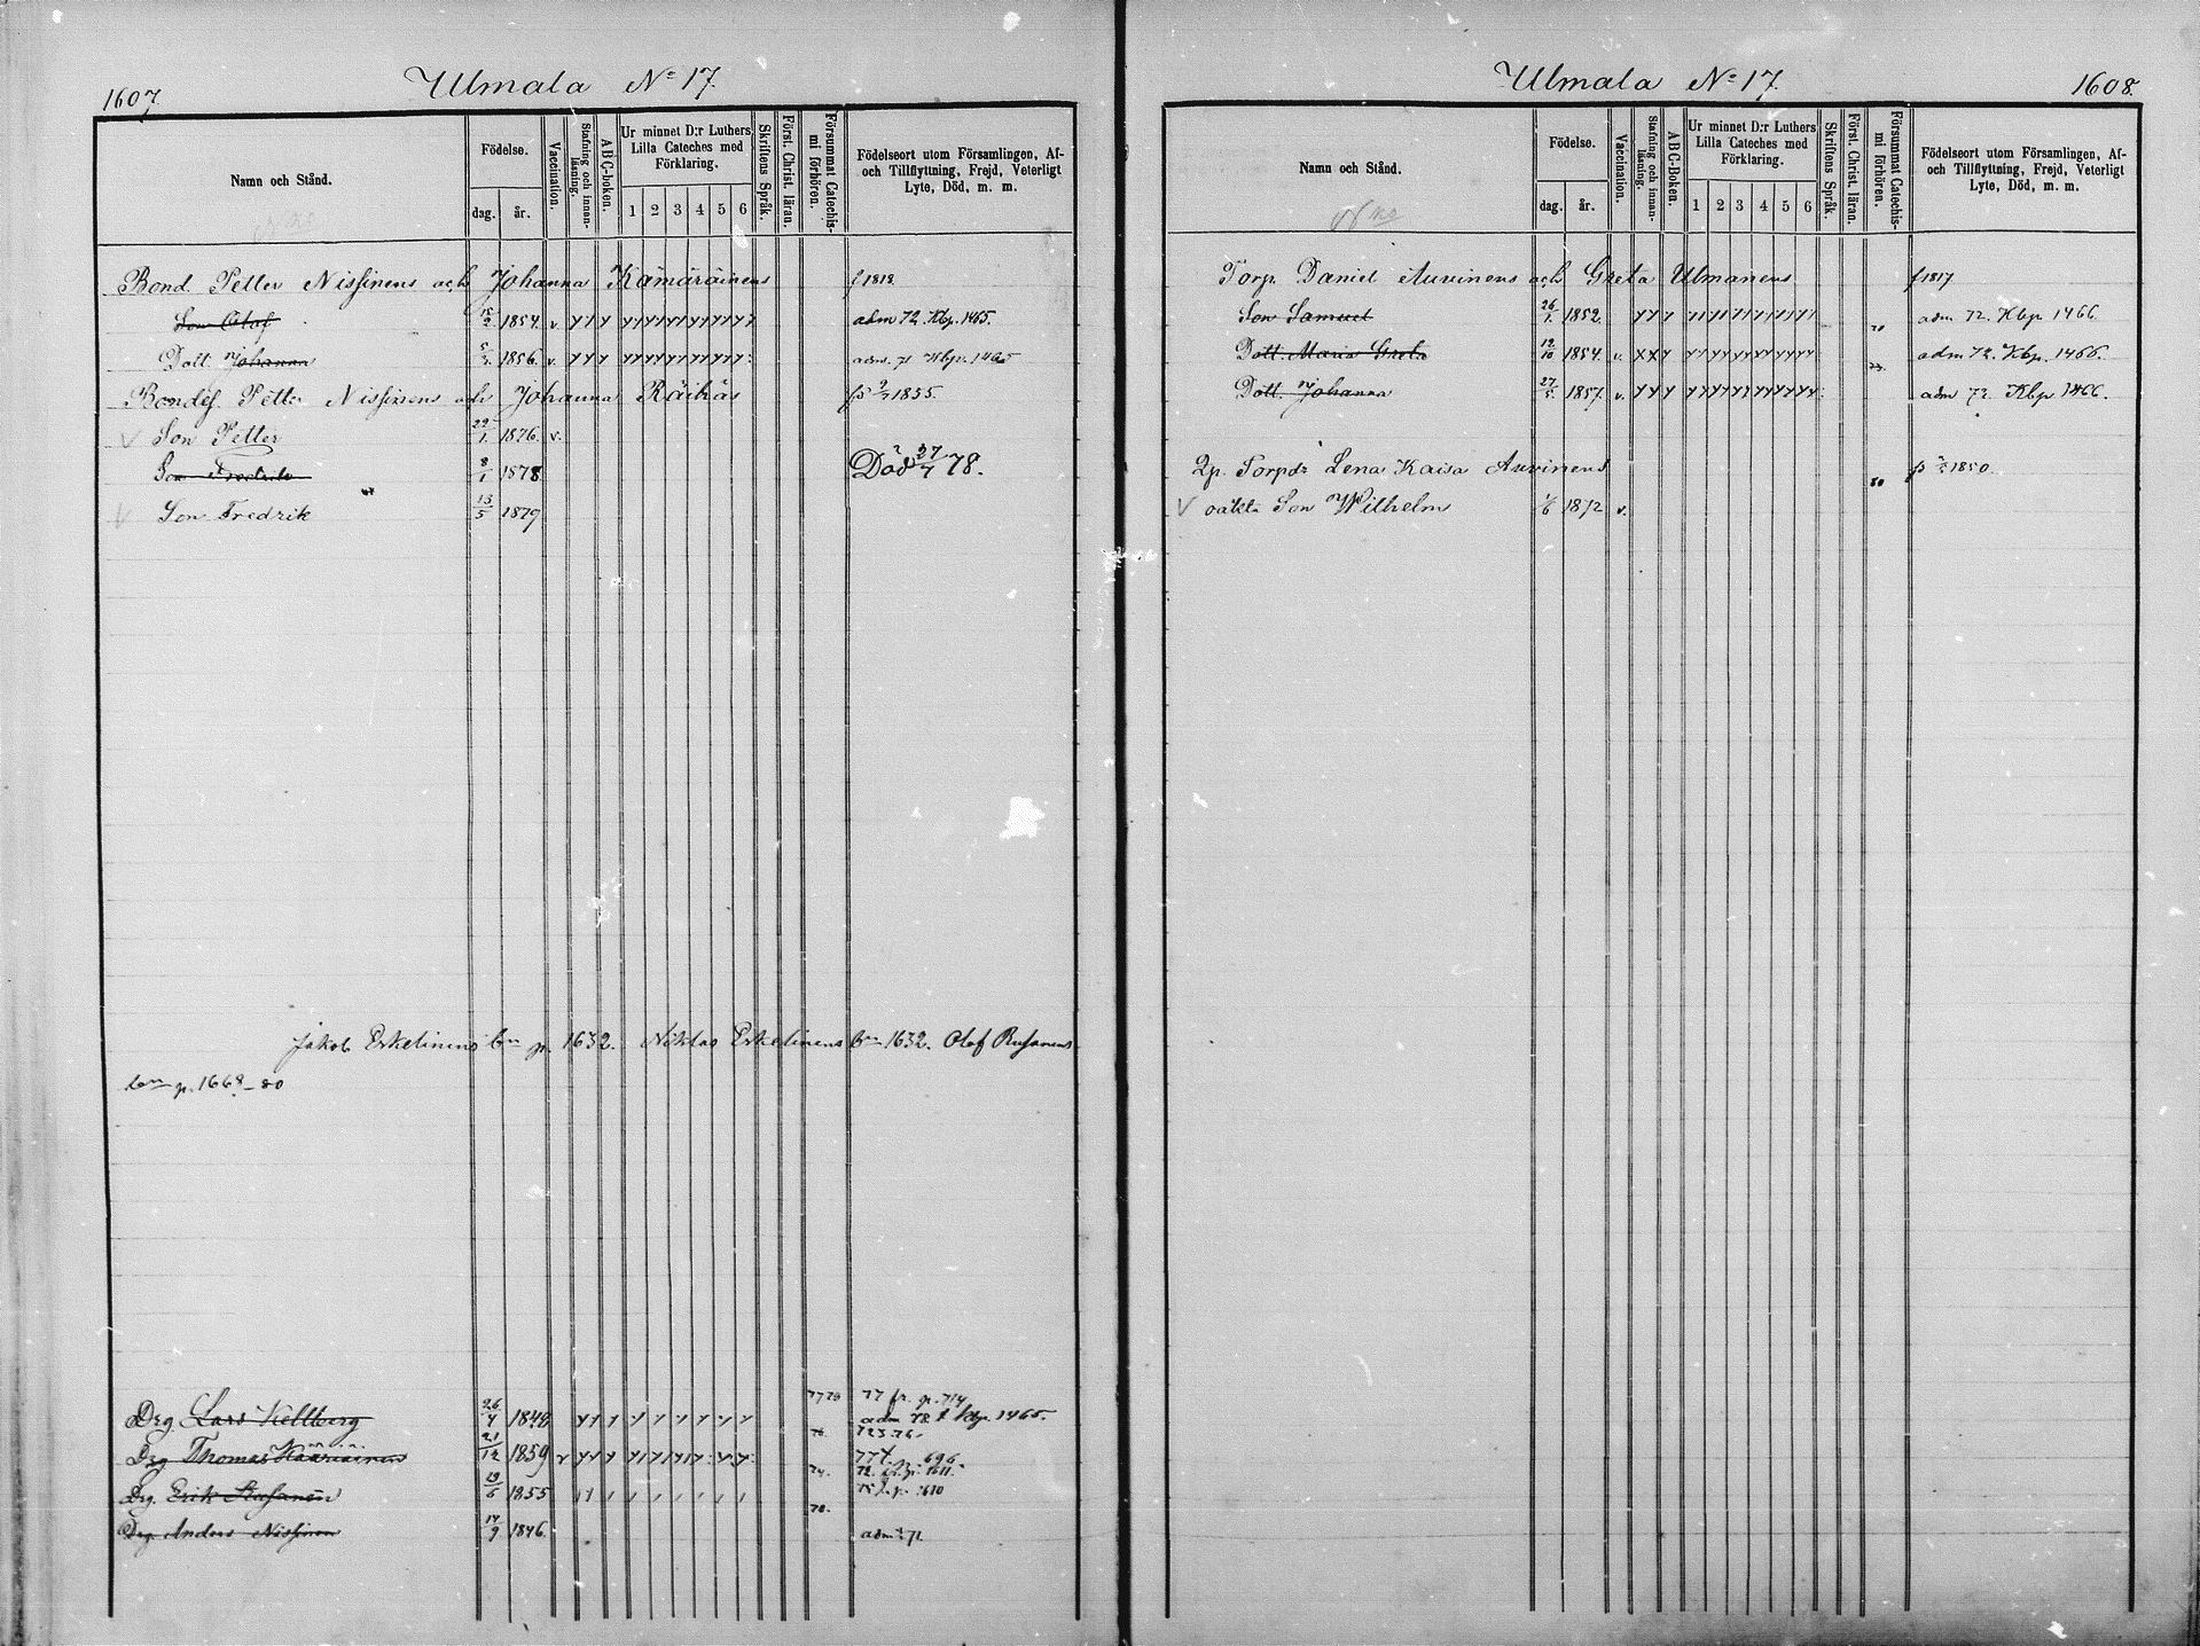 1607
Ulmala No 17.
Namn och Stånd.
Födelse.
dag. år.
Vaccination.
Stafning och innanläsning.
ABC-boken.
Ur minnet D:r Luthers Lilla Cateches med Förklaring.
1 2 3 4 5 6
Skriftens Språk.
Först. Christ. läran.
Försummat Catechismi förhören.
Födelseort utom Församlingen, Af- och Tillflyttning, Frejd, Veterligt Lyte, Död, m. m.
Bond Petter Nissinens och Johanna Kämäräinens f 1818.
Son Olof 15/2 1854. v. adm 72. Kbp. 1465.
Dott. Johanna 1856. v. adm. 71 Kbp. 1465
Bondes. Petter Nissinens och Johanna Räihäs 1855.
Son Petter 22/1 1876. v.
Son Fredrik 8/1 1878 Död 27/7 78.
Son Fredrik 13/5 1879
Jakob Eskelinens bn p. 1632. Niklas Eskelinens bn 1632. Olof Rusanens
bn p. 1668-80
Drg. Lars Kellberg 26/4 1848 77 fr. p. 714 adm 78 Kbp. 1465.
Drg Thomas Kääriäinen 21/12 1859 v
Drg. Erik Rusanen 19/6 1855
Drg. Anders Nissinen 14/9 1846. adm 71
Ulmala No 17.
1608.
Namn och Stånd.
Födelse.
dag. år.
Vaccination.
Stafning och innanläsning.
ABC-Boken.
Ur minnet D:r Luthers Lilla Cateches med Förklaring.
1 2 3 4 5 6
Skriftens Språk.
Först. Christ. läran.
Försummat Catechismi förhören.
Födelseort utom Församlingen, Af- och Tillflyttning, Frejd, Veterligt Lyte, Död, m. m.
Torp. Daniel Auvinens och Greta Ulmanens f 1817
Son Samuel 26/1 1852. adm 72. Kbp 1466
Dott. Maria Greta 12/10 1854. v. adm 72. Kbp. 1466.
Dott. Johanna 27/5 1857. v. adm 72. Kbp 1466.
Qp. Torpdr Lena Kaisa Auvinens 1850.
oäkta Son Wilhelm 1/6 1872 v.